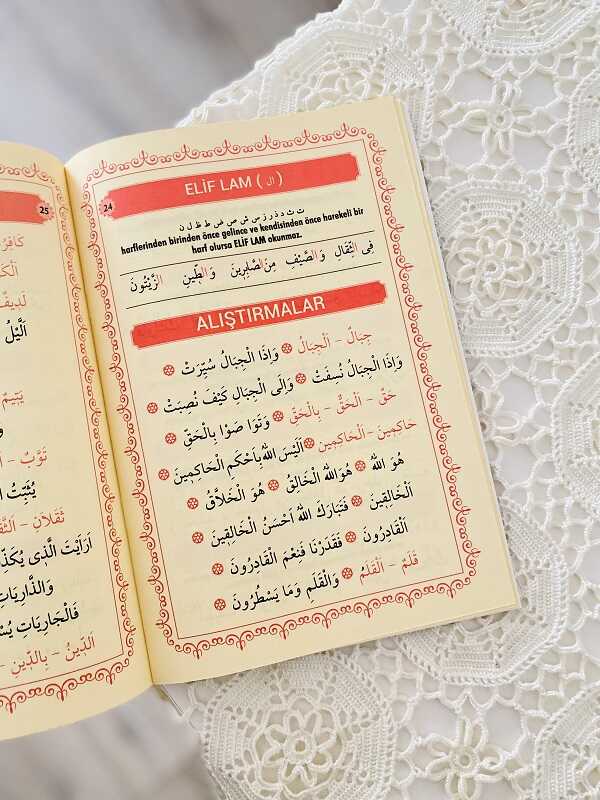 24
ELİF LAM ( ال )
ت ث د ذ ر ز س ش ص ض ط ظ ل ن
harflerinden birinden önce gelince ve kendisinden önce harekeli bir
harf olursa ELİF LAM okunmaz.
فِى الثِّقَالِ وَالصَّيْفِ مِنَ الصَّابِرِينَ وَالطِّينِ الزَّيْتُونَ
ALIŞTIRMALAR
جِبَالٌ - اَلْجِبَالُ وَاِذَا الْجِبَالُ سُيِّرَتْ
وَاِذَا الْجِبَالُ نُسِفَتْ وَاِلَى الْجِبَالِ كَيْفَ نُصِبَتْ
حَقٌّ - اَلْحَقُّ - بِالْحَقِّ وَتَوَا صَوْا بِالْحَقِّ
حَاكِمِينَ - اَلْحَاكِمِينَ اَلَيْسَ اللهُ بِاَحْكَمِ الْحَاكِمِينَ
هُوَ اللهُ هُوَ اللهُ الْخَالِقُ هُوَ الْخَلَّاقُ
اَلْخَالِقِينَ فَتَبَارَكَ اللهُ اَحْسَنُ الْخَالِقِينَ
اَلْقَادِرُونَ فَقَدَرْنَا فَنِعْمَ الْقَادِرُونَ
قَلَمٌ - اَلْقَلَمُ وَالْقَلَمِ وَمَا يَسْطُرُونَ
25
اَلَّيْلُ
يَتِيمٌ
تَوَّابٌ
ثَقَلَانِ
اَرَاَيْتَ الَّذِى
وَالذَّارِيَاتِ
فَالْجَارِيَاتِ
اَلدِّينُ - بِالدِّينِ